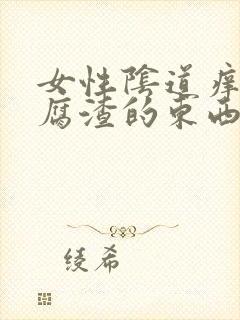 女性陰道痒
腐渣的東西
绫希